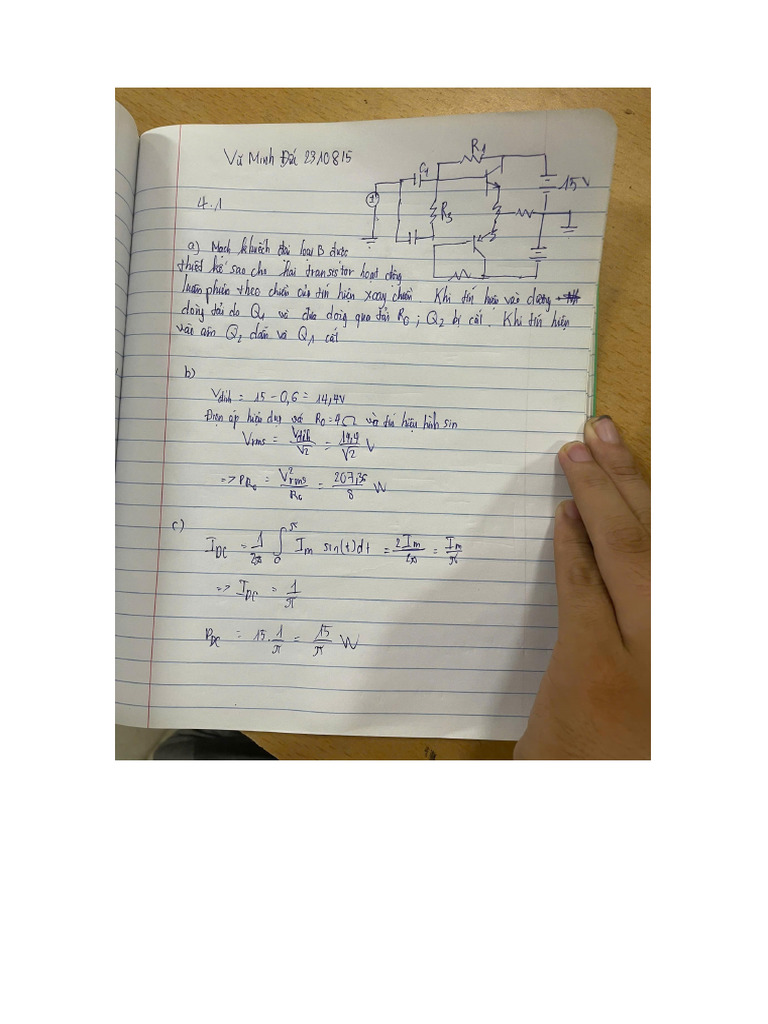 Vũ Minh Đức 2310815
R1
C1
1
15 V
R3
4.1
a) Mạch khuếch đại loại B được
thiết kế sao cho hai transistor hoạt động
luân phiên theo chiều của tín hiệu xoay chiều. Khi tín hiệu vào dương
dòng tải do Q1 và đưa dòng qua tải R6; Q2 bị cắt. Khi tín hiệu
vào âm Q2 dẫn và Q1 cắt
b)
Vđỉnh = 15 - 0,6 = 14,4V
Điện áp hiệu dụng với R6 = 4 Ω và tín hiệu hình sin
Vrms = Vđỉnh/√2 = 14,4/√2 V
=> PR6 = V²rms/R6 = 207,36/8 W
c)
IDC = 1/2π ∫₀^π Im sin(t)dt = 2Im/2π = Im/π
=> IDC = 1/π
PDC = 15.1/π = 15/π W